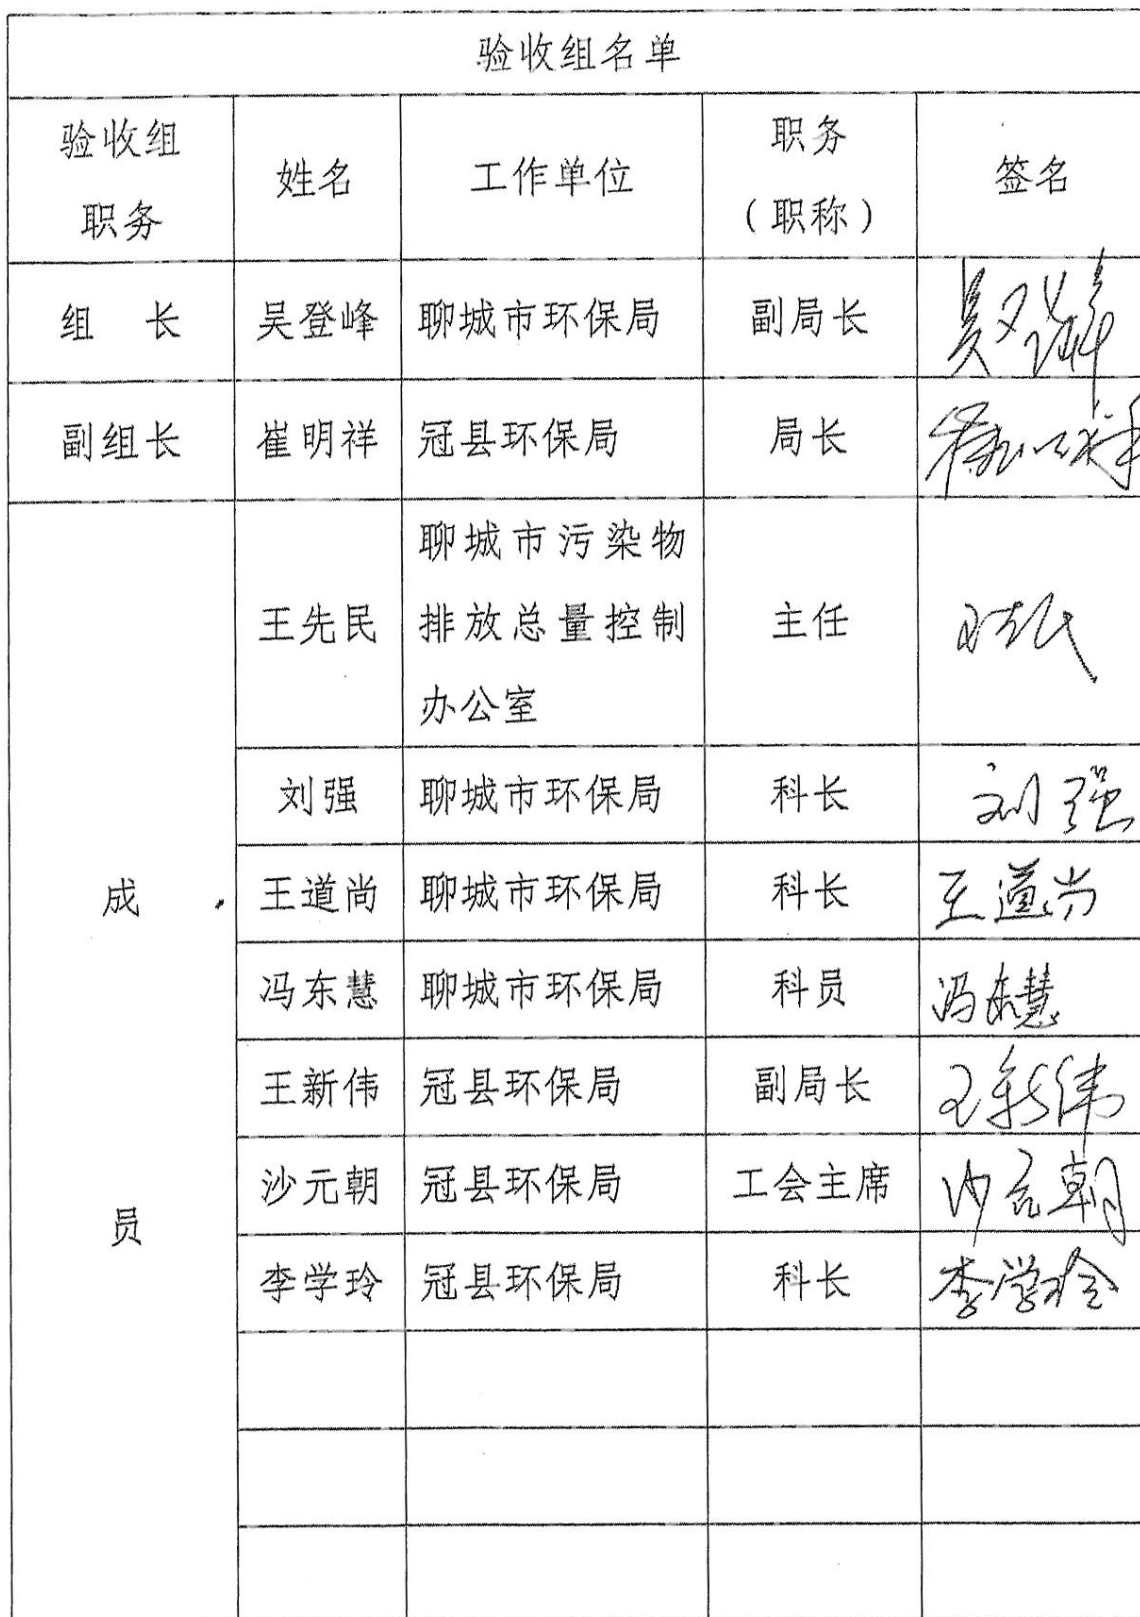 验收组名单
验收组
职务
姓名
工作单位
职务
（职称）
签名
组 长 吴登峰 聊城市环保局 副局长 吴登峰
副组长 崔明祥 冠县环保局 局长 崔明祥
成
员
王先民
聊城市污染物
排放总量控制
办公室
主任
王先民
刘强 聊城市环保局 科长 刘强
王道尚 聊城市环保局 科长 王道尚
冯东慧 聊城市环保局 科员 冯东慧
王新伟 冠县环保局 副局长 王新伟
沙元朝 冠县环保局 工会主席 沙元朝
李学玲 冠县环保局 科长 李学玲